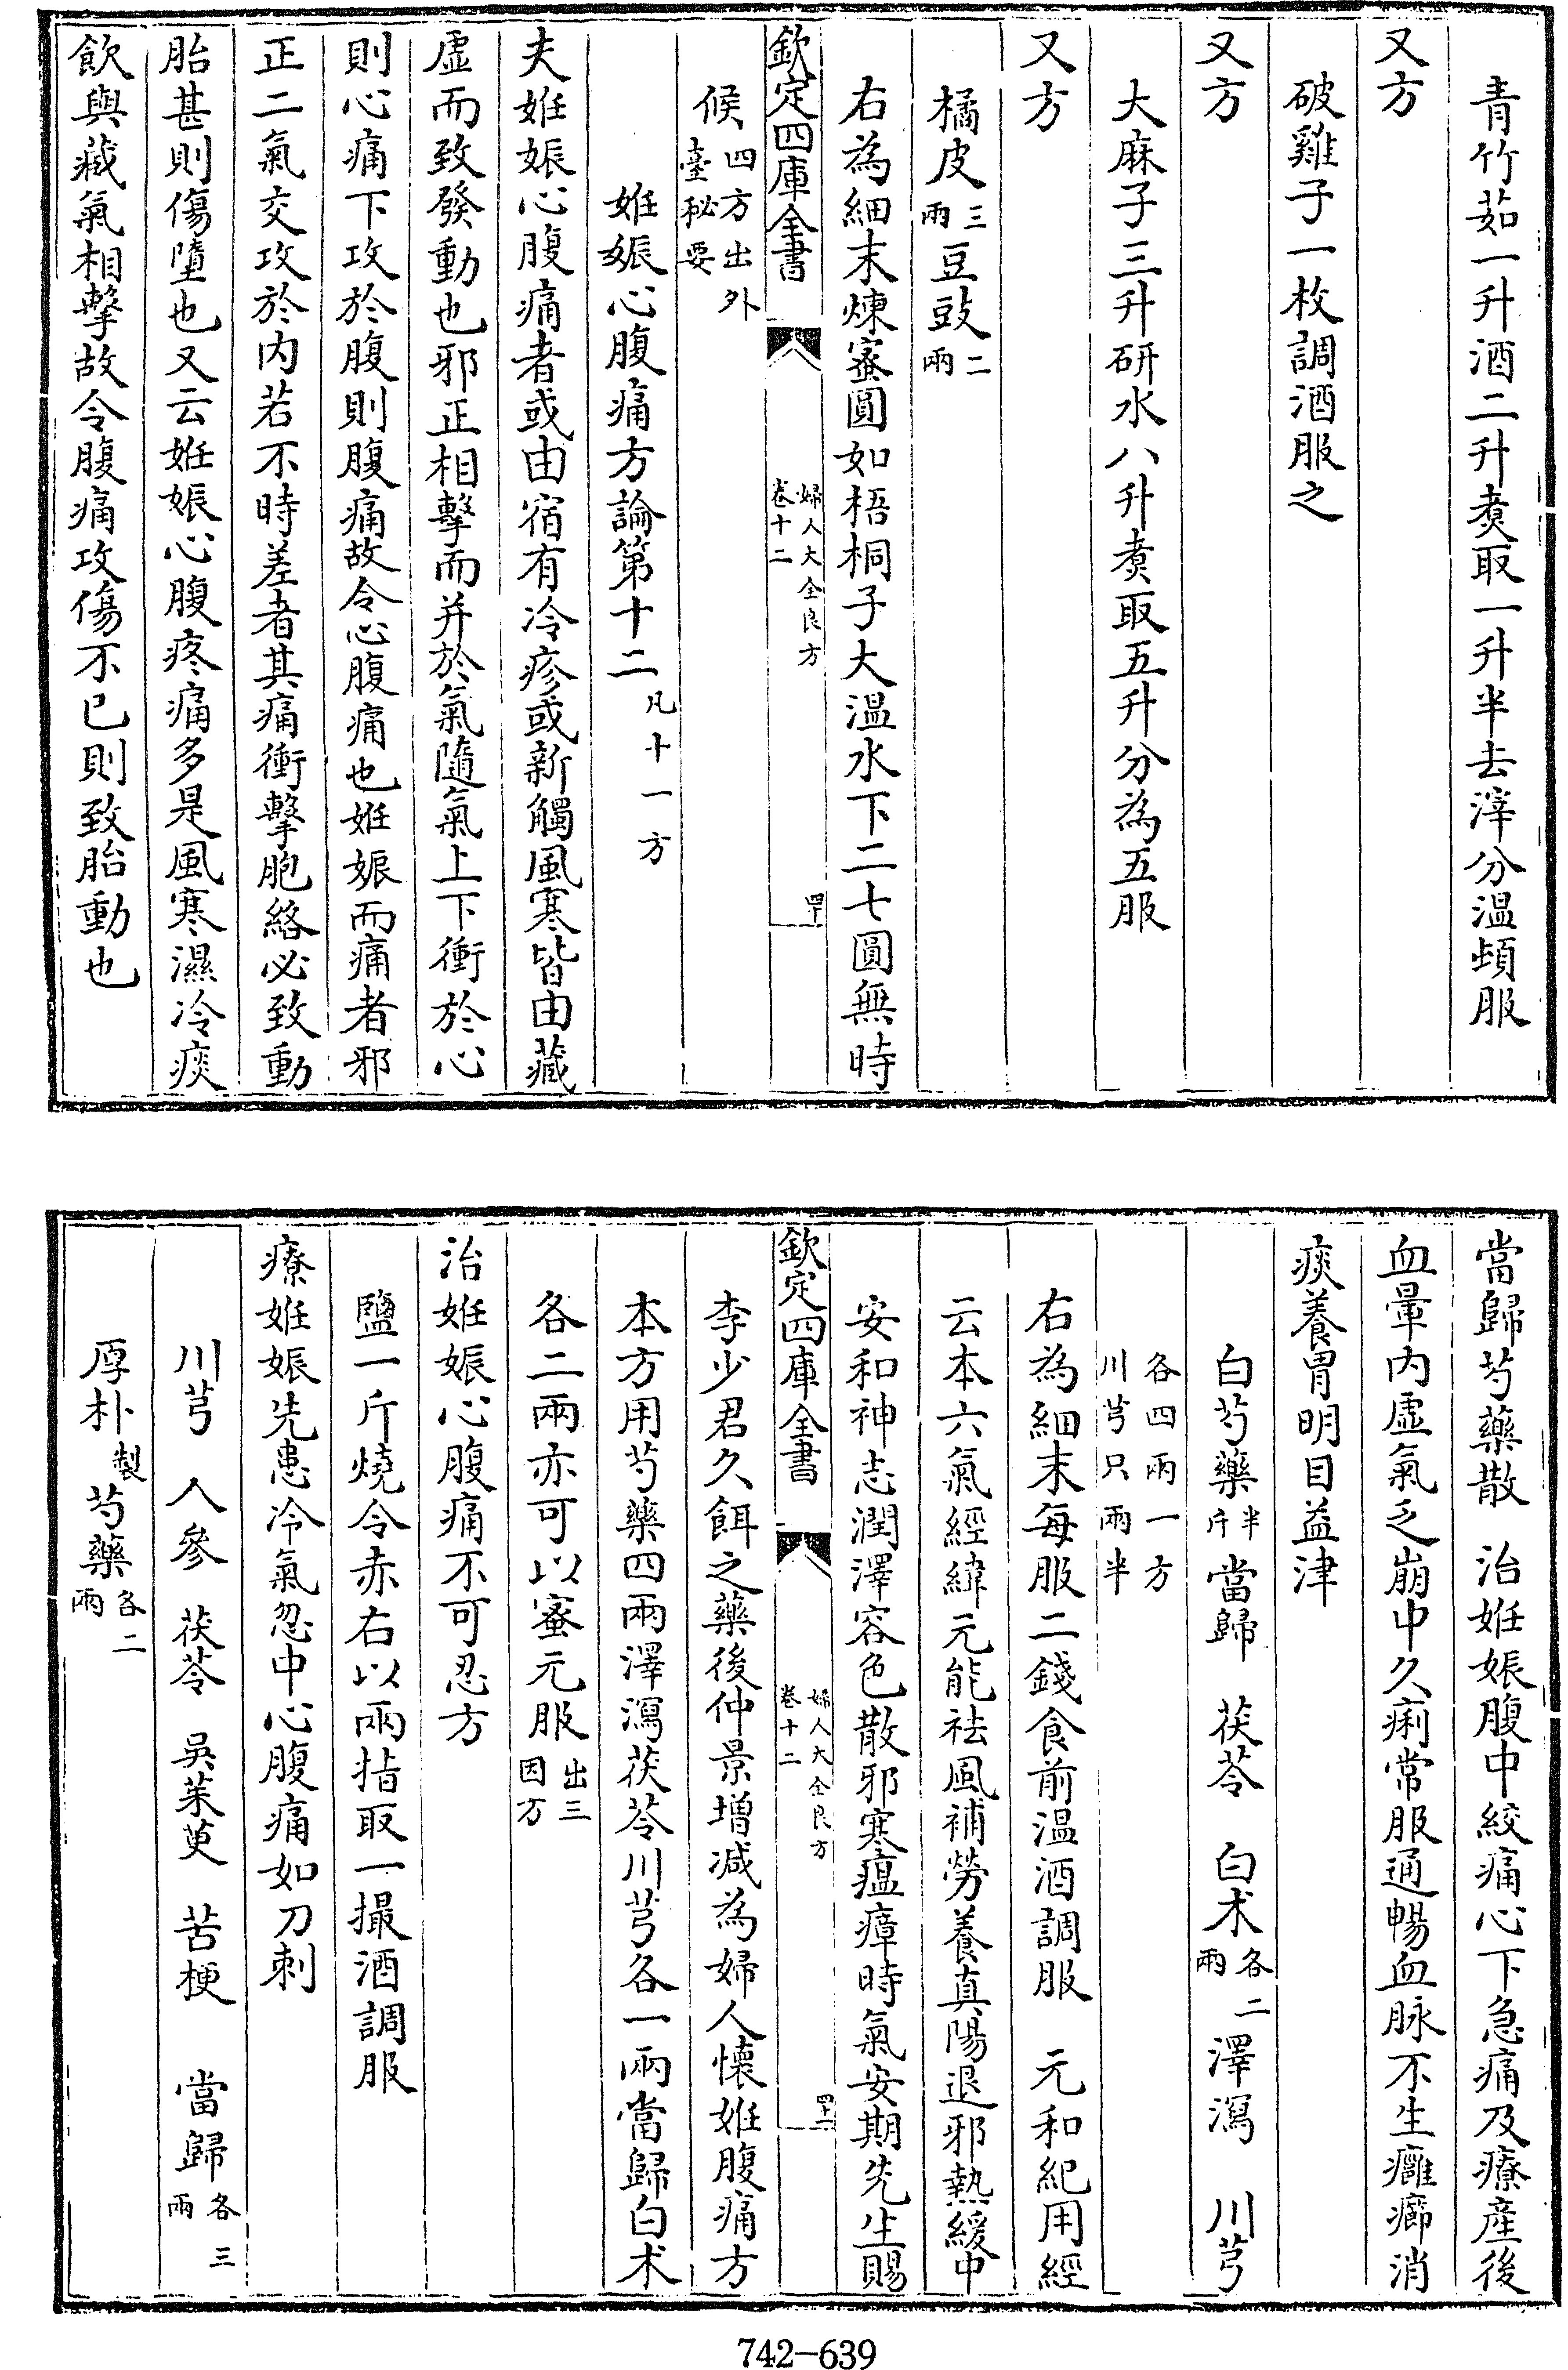 青竹茹一升酒二升煑取一升半去滓分温頓服
又方
破雞子一枚調酒服之
又方
大麻子三升研水八升煑取五升分為五服
又方
橘皮三兩豆豉二兩
右為細末煉蜜圓如梧桐子大温水下二七圓無時
欽定四庫全書
婦人大全良方
卷十二
四十
候四方出外臺秘要
姙娠心腹痛方論第十二凡十一方
夫姙娠心腹痛者或由宿有冷疹或新觸風寒皆由藏
虛而致發動也邪正相擊而并於氣隨氣上下衝於心
則心痛下攻於腹則腹痛故令心腹痛也姙娠而痛者邪
正二氣交攻於內若不時差者其痛衝擊胞絡必致動
胎甚則傷墮也又云姙娠心腹疼痛多是風寒濕冷痰
飲與藏氣相擊故令腹痛攻傷不已則致胎動也
當歸芍藥散 治姙娠腹中絞痛心下急痛及療産後
血暈內虛氣乏崩中久痢常服通暢血脉不生癰癤消
痰養胃明目益津
白芍藥半斤當歸 茯苓 白朮各二兩澤瀉 川芎
各四兩一方川芎只兩半
右為細末每服二錢食前温酒調服 元和紀用經
云本六氣經緯元能袪風補勞養真陽退邪熱緩中
安和神志潤澤容色散邪寒瘟瘴時氣安期先生賜
欽定四庫全書
婦人大全良方
卷十二
四十一
李少君久餌之藥後仲景增減為婦人懐姙腹痛方
本方用芍藥四兩澤瀉茯苓川芎各一兩當歸白朮
各二兩亦可以蜜元服出三因方
治姙娠心腹痛不可忍方
鹽一斤燒令赤右以兩指取一撮酒調服
療姙娠先患冷氣忽中心腹痛如刀刺
川芎 人參 茯苓 吳茱萸 苦梗 當歸各三兩
厚朴製芍藥各二兩
742-639